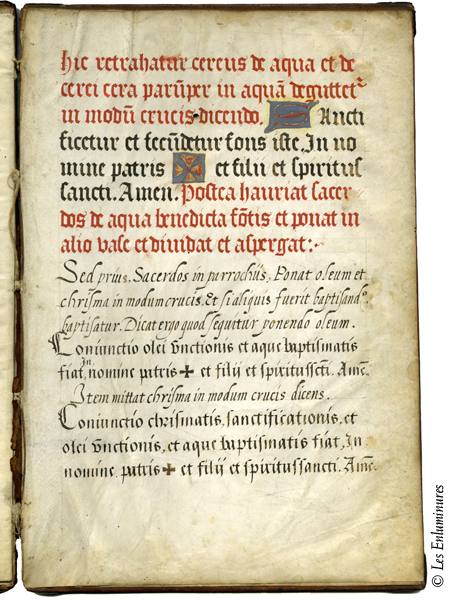 hic retrahatur cereus de aqua et de
cerei cera parũper in aquã deguttetᷣ
in modũ crucis dicendo. S Ancti
ficetur et fecũdetur fons iste. In no
mine patris ✠ et filii et spiritus
sancti. Amen. Postea hauriat sacer
dos de aqua benedicta fõtis et ponat in
alio vase et diuidat et aspergat:
Sed prius. Sacerdos in parrochiis, Ponat oleum et
chrisma in modum crucis, et si aliquis fuerit baptisandꝰ.
baptisatur. Dicat ergo quod sequitur ponendo oleum.
Coniunctio olei vnctionis et aque baptismatis
fiat, In nomine patris ✠ et filii et spiritus scti. Amē.
Item mittat chrisma in modum crucis dicens.
Coniunctio chrismatis, sanctificationis, et
olei vnctionis, et aque baptismatis fiat, In
nomine, patris ✠ et filij et spiritus sancti. Amē.
© Les Enluminures